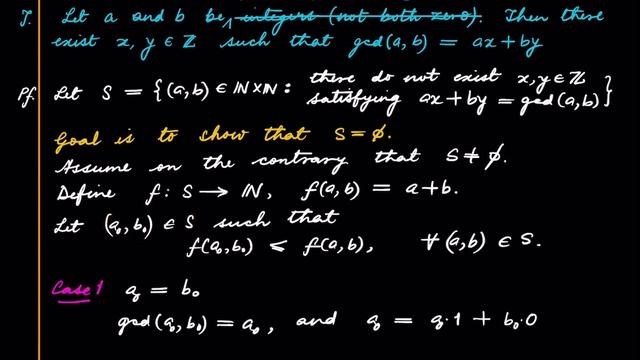 T. Let a and b be, integers (not both zero). Then there
exist x, y ∈ ℤ such that gcd(a, b) = ax + by
Pf. Let S = {(a, b) ∈ ℕ × ℕ : there do not exist x, y ∈ ℤ
satisfying ax + by = gcd(a, b)}
Goal is to show that S = ∅.
Assume on the contrary that S ≠ ∅.
Define f : S → ℕ, f(a, b) = a + b.
Let (a₀, b₀) ∈ S such that
f(a₀, b₀) ≤ f(a, b), ∀ (a, b) ∈ S.
Case 1 a₀ = b₀
gcd(a₀, b₀) = a₀, and a₀ = a₀·1 + b₀·0